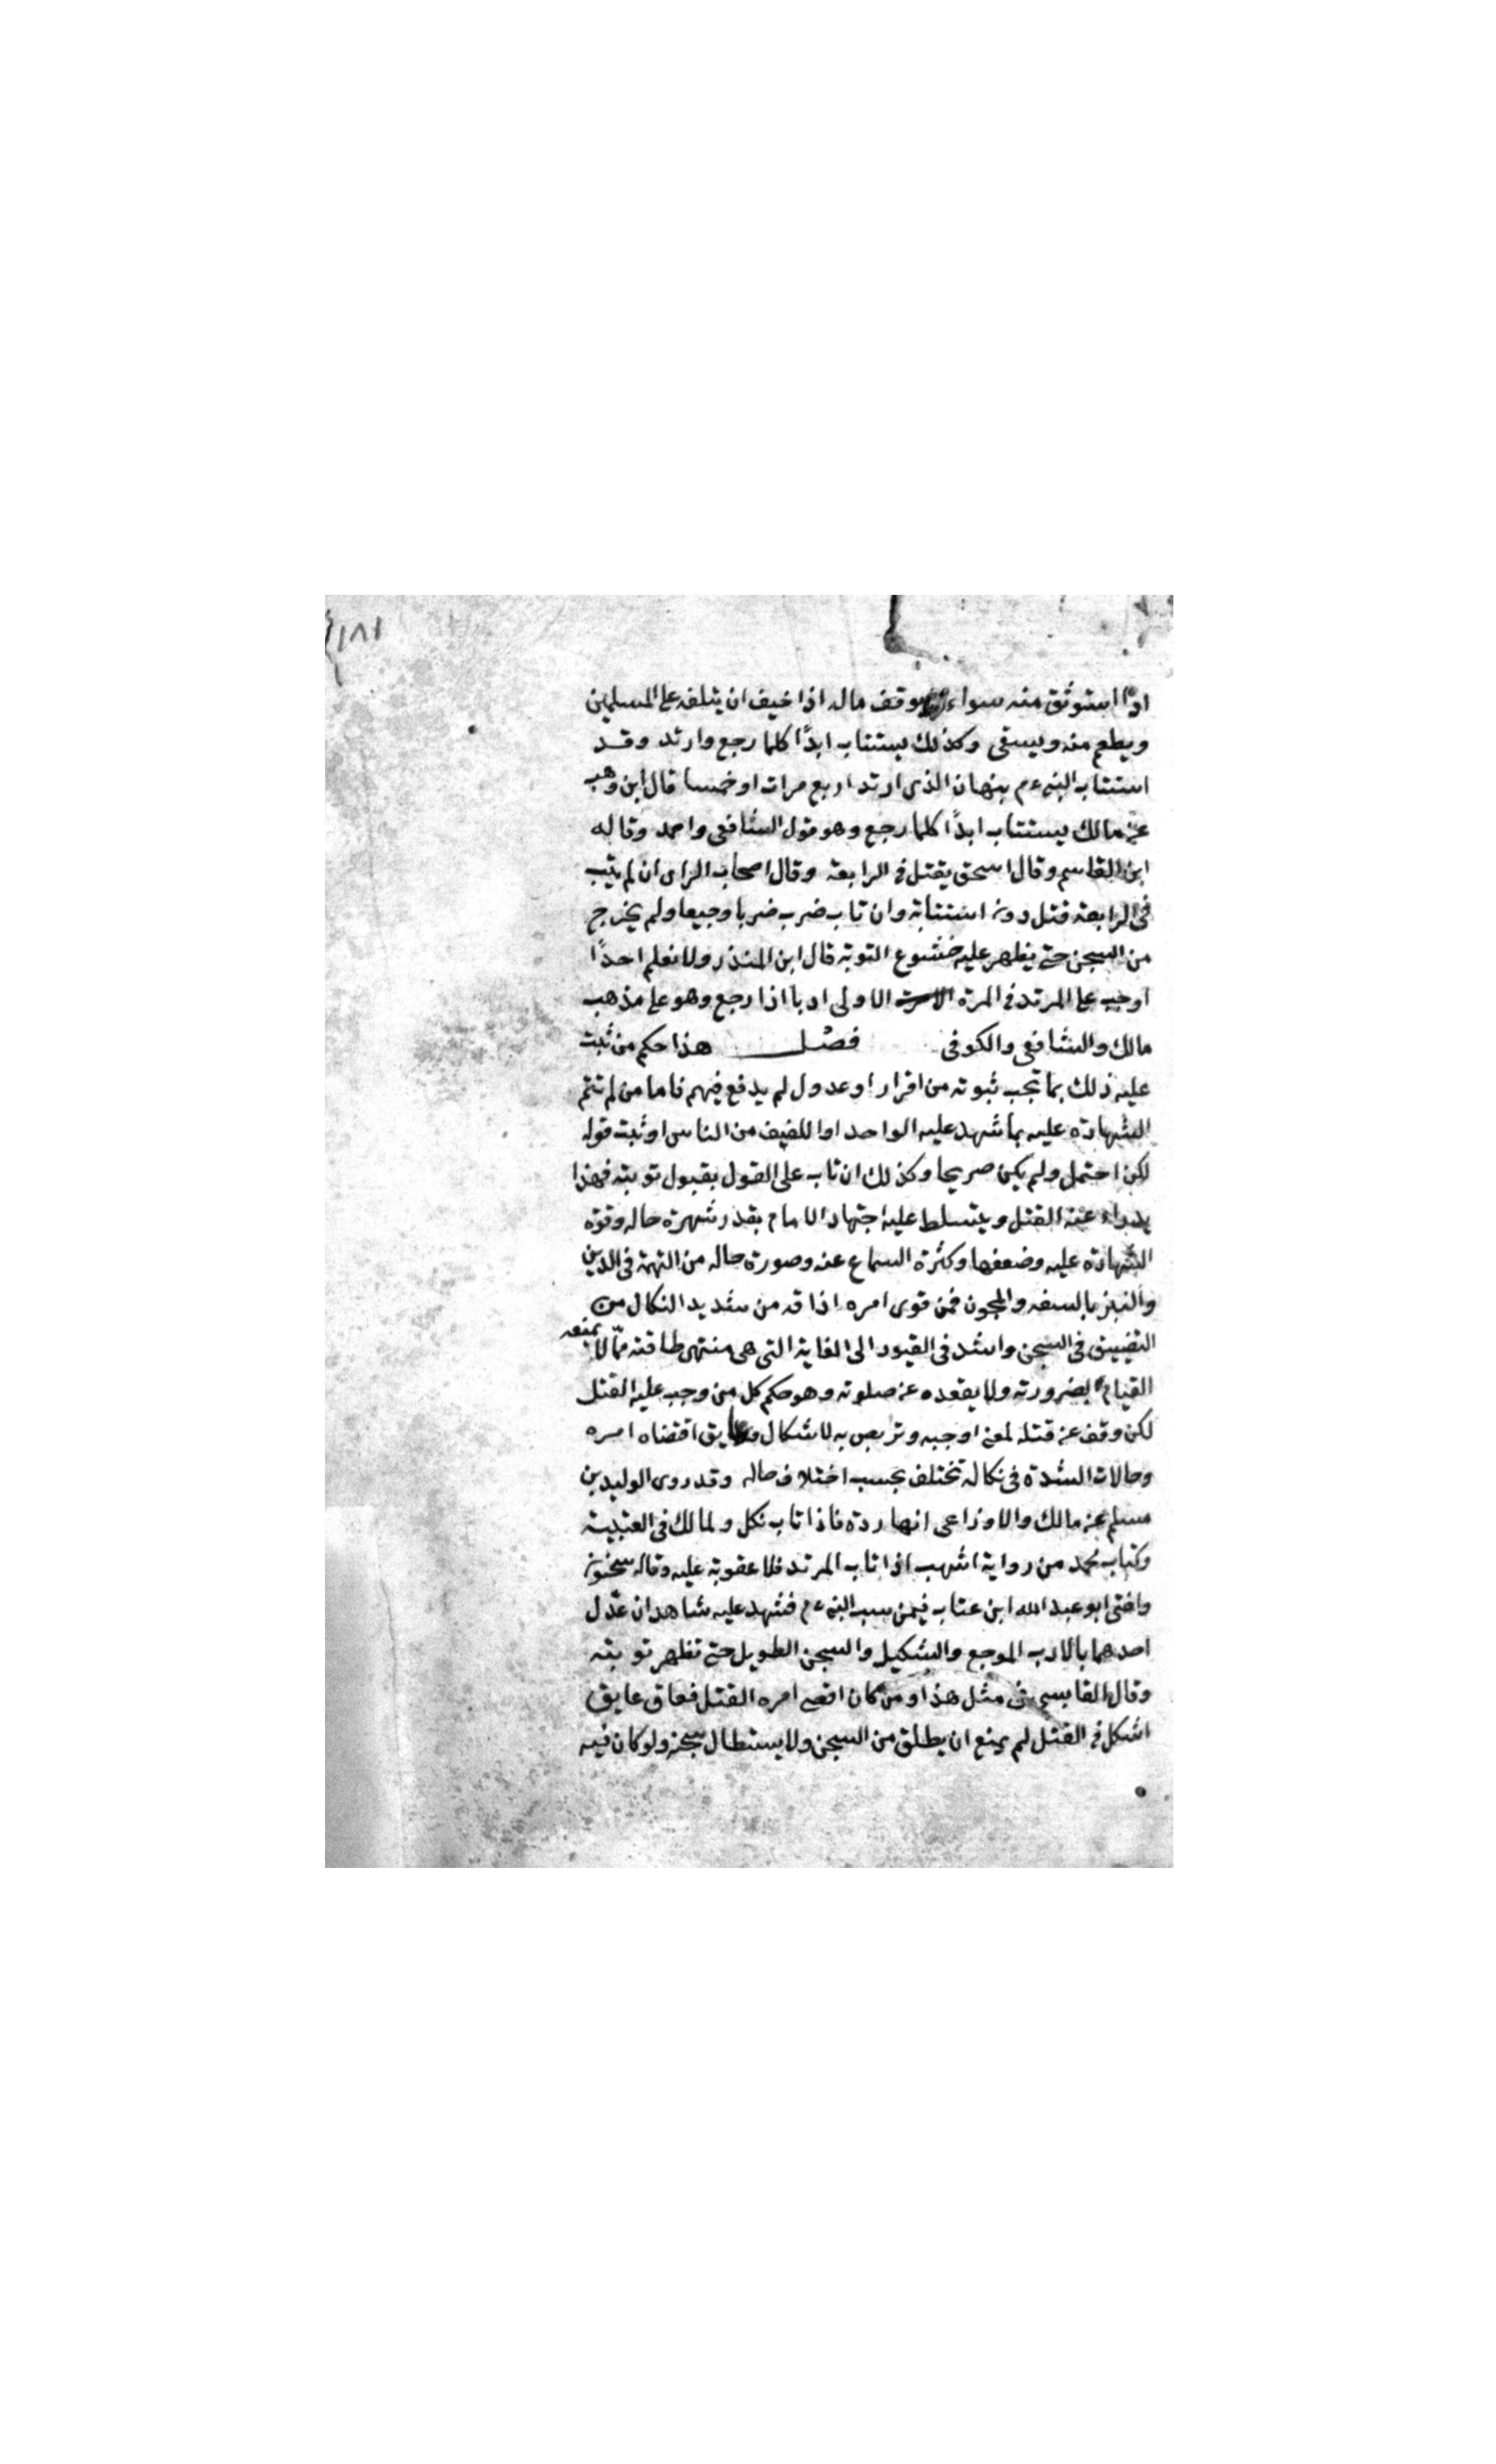 ١٨١
اذا استوثق منه سواء ويوقف ماله اذا خيف ان يتلفه على المسلمين
ويطعم منه ويسقى وكذلك يستتاب ابدًا كلما رجع وارتد وقد
استتاب النبى ءم بنهان الذى ارتد اربع مرات او خمسا قال ابن وهب
عن مالك يستتاب ابدًا كلما رجع وهو قول الشافعى واحمد وقاله
ابن القاسم وقال اسحق يقتل فى الرابعة وقال اصحاب الراى ان لم يتب
فى الرابعة قتل دون استتابة وان تاب ضرب ضربا وجيعا ولم يخرج
من السجن حتى يظهر عليه خشوع التوبة قال ابن المنذر ولا نعلم احدًا
اوجب على المرتد فى المرة الاولى ادبا اذا رجع وهو على مذهب
مالك والشافعى والكوفى فصل هذا حكم من ثبت
عليه ذلك بما تجب ثبوته من اقرار او عدول لم يدفع فيهم فاما من لم تتم
الشهادة عليه بما شهد عليه الواحد او اللفيف من الناس او ثبت قوله
لكن احتمل ولم يكن صريحا وكذلك ان تاب على القول بقبول توبته فهذا
يدراء عنه القتل ويتسلط عليه اجتهاد الامام بقدر شهرة حاله وقوة
الشهادة عليه وضعفها وكثرة السماع عنه وصورة حاله من التهمة فى الدين
والنبز بالسفه والمجون فمن قوى امره اذاقه من شديد النكال من
التضييق فى السجن والشد فى القيود الى الغاية التى هى منتهى طاقته مما لا يمنعه
القيام لضرورته ولا يقعده عن صلوته وهو حكم كل من وجب عليه القتل
لكن وقف عن قتله لمعنى اوجبه وتربص به لاشكال وعايق اقتضاه امره
وحالات الشدة فى نكاله تختلف بحسب اختلاف حاله وقد روى الوليد بن
مسلم عن مالك والاوزاعى انها ردة فاذا تاب نكل ولمالك فى العتبية
وكتاب محمد من رواية اشهب اذا تاب المرتد فلا عقوبة عليه وقاله سحنون
وافتى ابو عبد الله ابن عتاب فيمن سب النبى ءم فشهد عليه شاهدان عدّل
احدهما بالادب الموجع والتنكيل والسجن الطويل حتى تظهر توبته
وقال القابسى فى مثل هذا ومن كان اقصى امره القتل فعاق عايق
اشكل فى القتل لم يمنع ان يطلق من السجن ولا يستطال سجنه ولو كان فيه